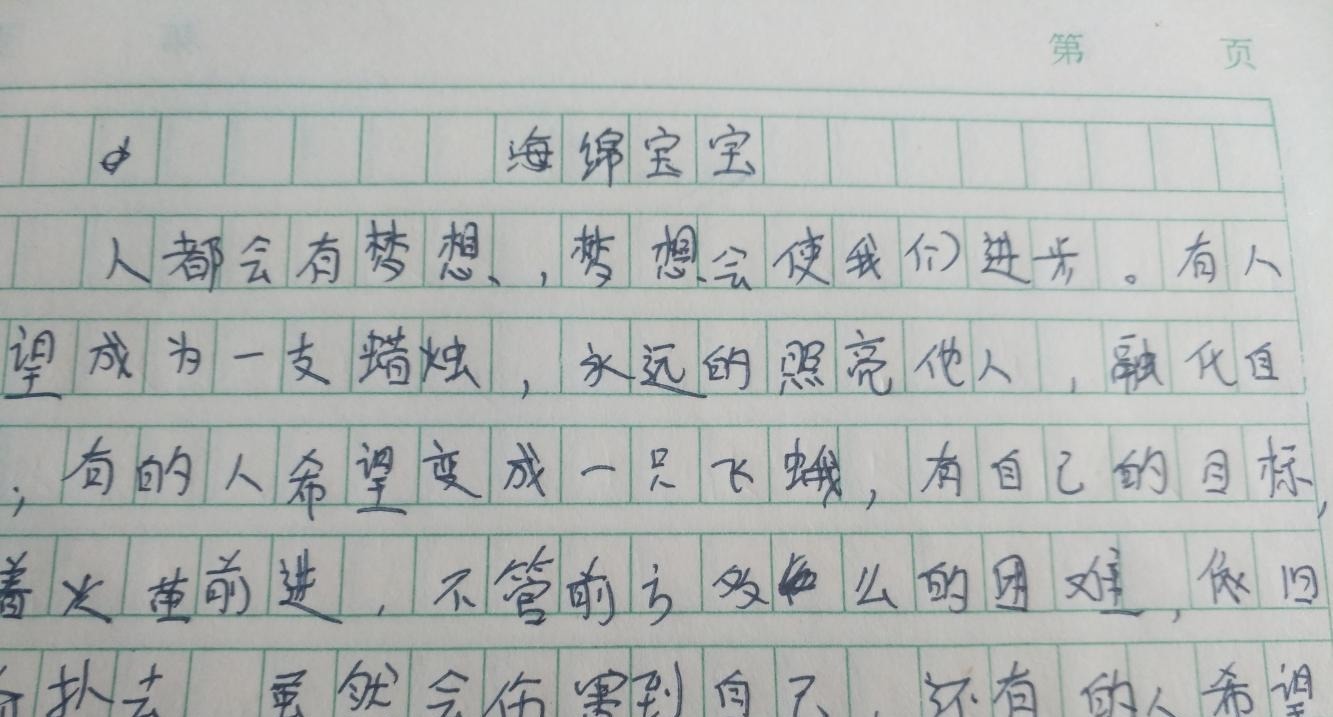 第 页
海绵宝宝
人都会有梦想,梦想会使我们进步。有人
望成为一支蜡烛,永远的照亮他人,融化自
;有的人希望变成一只飞蛾,有自己的目标,
着火苗前进,不管前方多么的困难,依旧
扑去 虽然会伤害到自己,还有的人希望